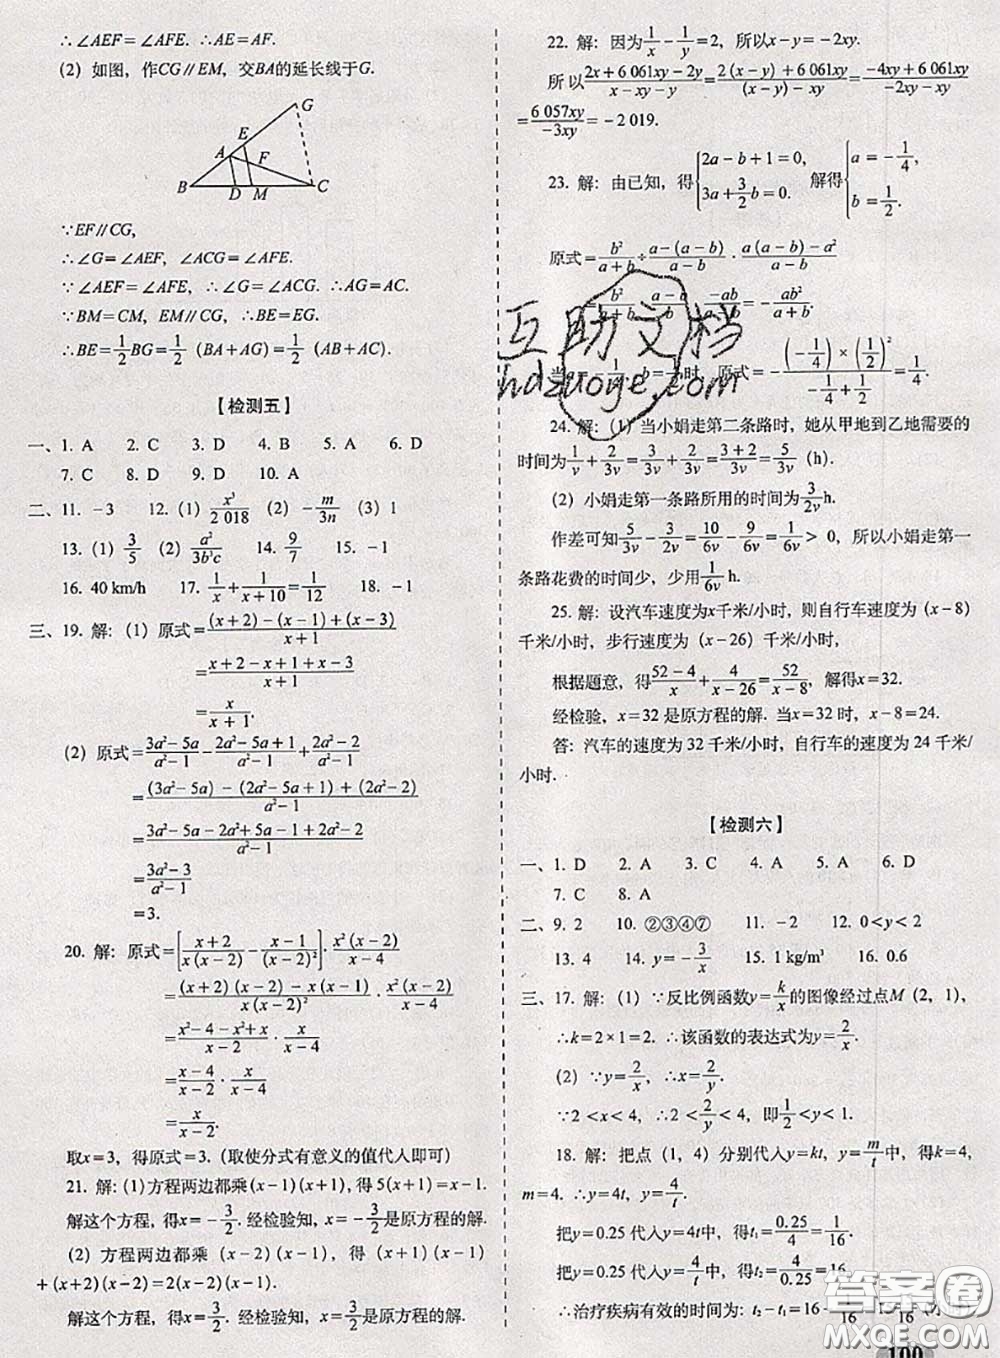 ∴∠AEF=∠AFE. ∴AE=AF.
(2) 如图, 作CG∥EM, 交BA的延长线于G.
G
E
A
F
B
D
M
C
∵EF∥CG,
∴∠G=∠AEF, ∠ACG=∠AFE.
∵∠AEF=∠AFE, ∴∠G=∠ACG. ∴AG=AC.
∵BM=CM, EM∥CG, ∴BE=EG.
∴BE=1/2BG=1/2(BA+AG)=1/2(AB+AC).
【检测五】
一、1. A 2. C 3. D 4. B 5. A 6. D
7. C 8. D 9. D 10. A
二、11. -3 12. (1) x³/2 018 (2) -m/3n (3) 1
13. (1) 3/5 (2) a²/3b³c 14. 9/7 15. -1
16. 40 km/h 17. 1/x+1/(x+10)=1/12 18. -1
三、19. 解: (1) 原式=((x+2)-(x-1)+(x-3))/(x+1)
=(x+2-x+1+x-3)/(x+1)
=x/(x+1).
(2) 原式=(3a²-5a)/(a²-1)-(2a²-5a+1)/(a²-1)+(2a²-2)/(a²-1)
=((3a²-5a)-(2a²-5a+1)+(2a²-2))/(a²-1)
=(3a²-5a-2a²+5a-1+2a²-2)/(a²-1)
=(3a²-3)/(a²-1)
=3.
20. 解: 原式=[(x+2)/(x(x-2))-(x-1)/(x-2)²]·x²(x-2)/(x-4)
=((x+2)(x-2)-x(x-1))/(x(x-2)²)·x²(x-2)/(x-4)
=(x²-4-x²+x)/(x-2)·x/(x-4)
=(x-4)/(x-2)·x/(x-4)
=x/(x-2).
取x=3, 得原式=3. (取使分式有意义的值代人即可)
21. 解: (1)方程两边都乘(x-1)(x+1), 得5(x+1)=x-1.
解这个方程, 得x=-3/2. 经检验知, x=-3/2是原方程的解.
(2) 方程两边都乘 (x-2)(x-1), 得 (x+1)(x-1)
+(x+2)(x-2)=2(x-2)(x-1).
解这个方程, 得x=3/2. 经检验知, x=3/2是原方程的解.
22. 解: 因为1/x-1/y=2, 所以x-y=-2xy.
所以(2x+6 061xy-2y)/(x-y-xy)=(2(x-y)+6 061xy)/((x-y)-xy)=(-4xy+6 061xy)/(-2xy-xy)
=6 057xy/-3xy=-2 019.
23. 解: 由已知, 得{2a-b+1=0, 3a+3/2b=0. 解得{a=-1/4, b=1/2.
原式=b²/(a+b)÷(a-(a-b))/(a-b)·(a(a-b)-a²)/(a-b)
=b²/(a+b)·(a-b)/b·-ab/(a-b)=-ab²/(a+b).
当a=-1/4, b=1/2时, 原式=-((-1/4)×(1/2)²)/(-1/4+1/2)=1/4.
24. 解: (1) 当小娟走第二条路时, 她从甲地到乙地需要的
时间为1/v+2/3v=3/3v+2/3v=(3+2)/3v=5/3v (h).
(2) 小娟走第一条路所用的时间为3/2v h.
作差可知5/3v-3/2v=10/6v-9/6v=1/6v>0, 所以小娟走第一
条路花费的时间少, 少用1/6v h.
25. 解: 设汽车速度为x千米/小时, 则自行车速度为 (x-8)
千米/小时, 步行速度为 (x-26) 千米/小时,
根据题意, 得(52-4)/x+4/(x-26)=52/(x-8), 解得x=32.
经检验, x=32 是原方程的解. 当x=32 时, x-8=24.
答: 汽车的速度为 32 千米/小时, 自行车的速度为 24 千米/
小时.
【检测六】
一、1. D 2. A 3. C 4. A 5. A 6. D
7. C 8. A
二、9. 2 10. ②③④⑦ 11. -2 12. 0<y<2
13. 4 14. y=-3/x 15. 1 kg/m³ 16. 0.6
三、17. 解: (1) ∵反比例函数y=k/x的图像经过点M (2, 1),
∴k=2×1=2. ∴该函数的表达式为y=2/x.
(2) ∵y=2/x, ∴x=2/y.
∵2<x<4, ∴2<2/y<4, 即1/2<y<1.
18. 解: 把点 (1, 4) 分别代入y=kt, y=m/t中, 得k=4,
m=4. ∴y=4t, y=4/t.
把y=0.25 代入y=4t中, 得t₁=0.25/4=1/16.
把y=0.25 代入y=4/t中, 得t₂=4/0.25=16.
∴治疗疾病有效的时间为: t₂-t₁=16-
互助文档
hdzuoye.com
答案圈
MXQE.COM
100